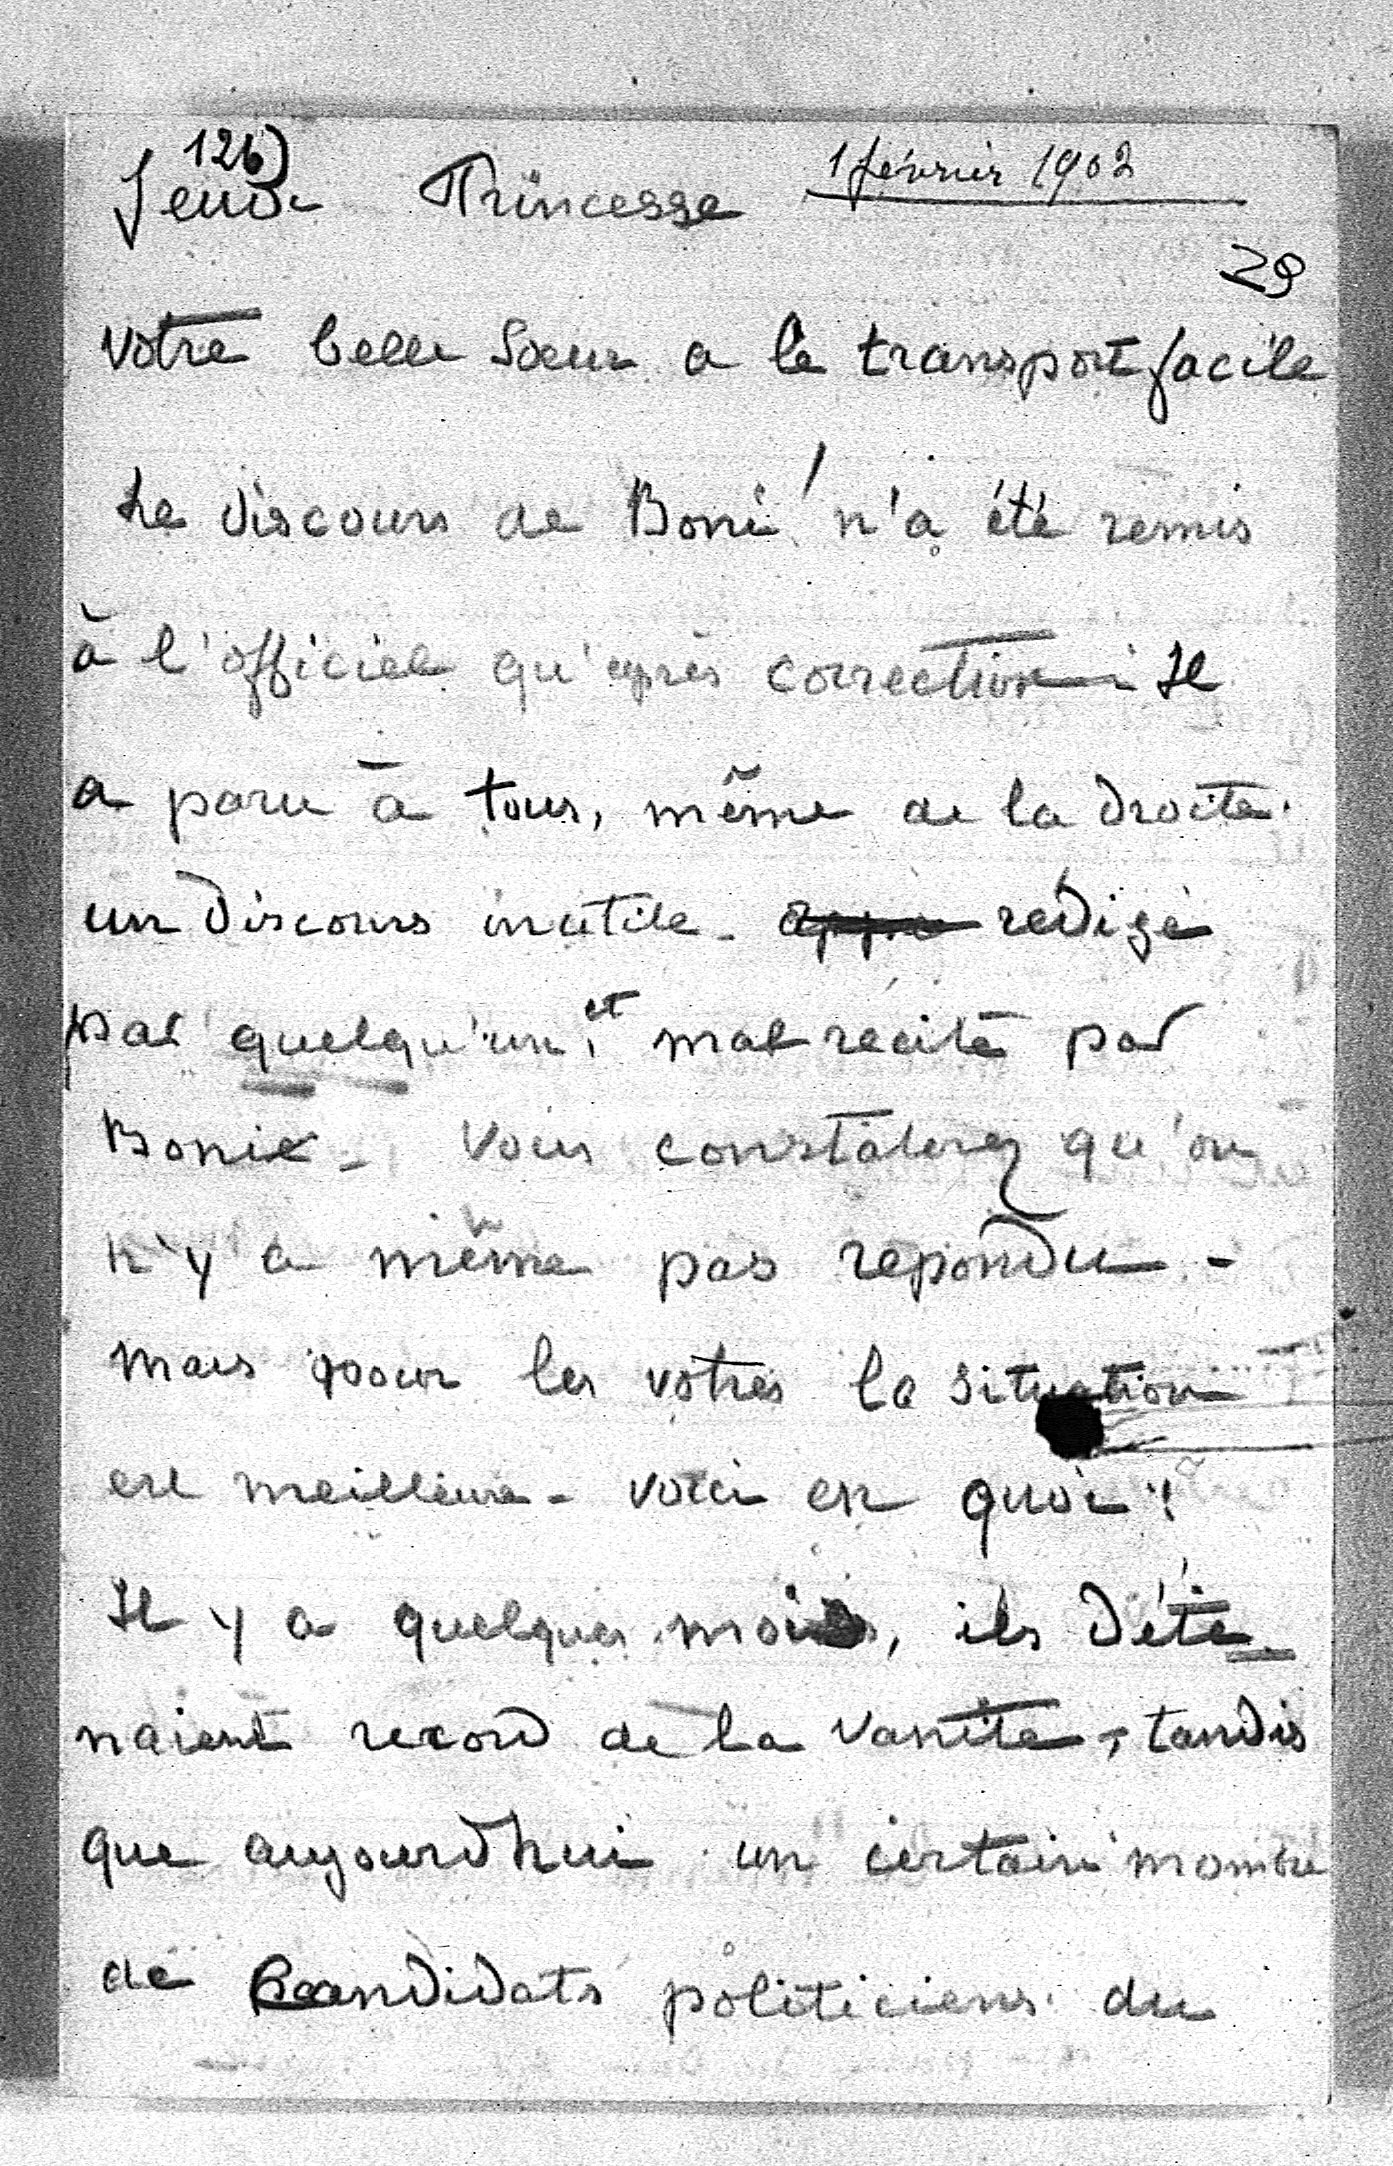 126)
Jeudi Princesse 1 février 1902
29
votre belle Soeur a le transport facile
Le discours de Boni n'a été remis
à l'officiel qu'après correction - Il
a paru à tous, même de la droite.
un discours inutile - rédigé
par quelqu'un, et mal récité par
Boni - Vous constaterez qu'on
n'y a même pas repondu -
mais pour les votres la situation
est meilleure - voici en quoi :
Il y a quelques mois, ils déte-
naient record de la vanité, tandis
que aujourd'hui un certain nombre
de Candidats politiciens du